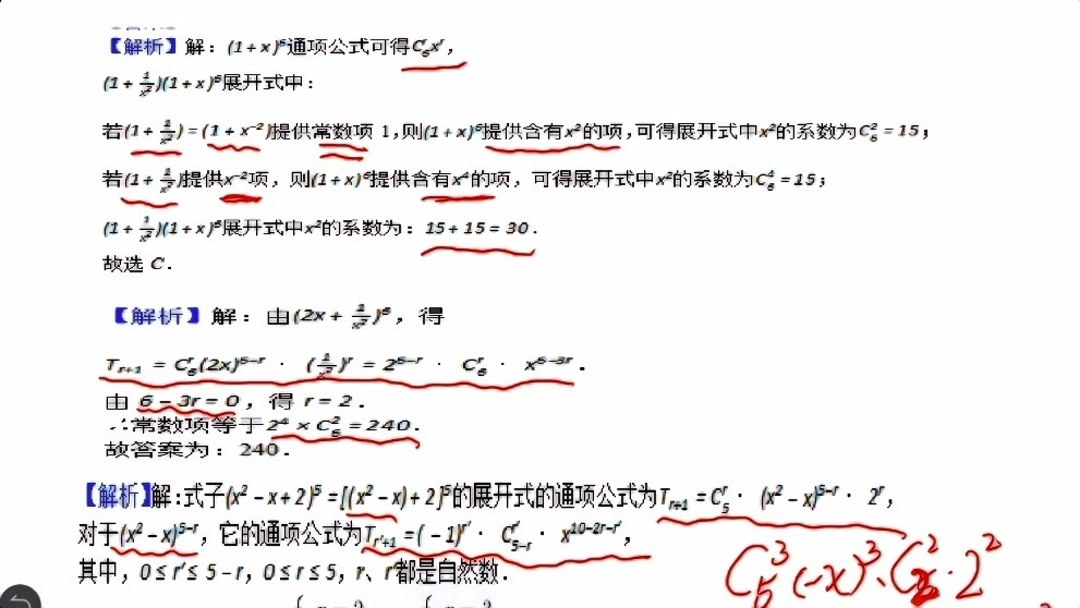 【解析】解：(1+x)⁶通项公式可得C₆ʳxʳ，
(1+1/x²)(1+x)⁶展开式中：
若(1+1/x²)=(1+x⁻²)提供常数项1，则(1+x)⁶提供含有x²的项，可得展开式中x²的系数为C₆²=15；
若(1+1/x²)提供x⁻²项，则(1+x)⁶提供含有x⁴的项，可得展开式中x²的系数为C₆⁴=15；
(1+1/x²)(1+x)⁶展开式中x²的系数为：15+15=30．
故选C．
【解析】解：由(2x+1/x²)⁶，得
Tᵣ₊₁=C₆ʳ(2x)⁶⁻ʳ·(1/x²)ʳ=2⁶⁻ʳ·C₆ʳ·x⁶⁻³ʳ．
由6−3r=0，得r=2．
∴常数项等于2⁴×C₆²=240．
故答案为：240．
【解析】解：式子(x²−x+2)⁵=[(x²−x)+2]⁵的展开式的通项公式为Tᵣ₊₁=C₅ʳ·(x²−x)⁵⁻ʳ·2ʳ，
对于(x²−x)⁵⁻ʳ，它的通项公式为Tᵣ′₊₁=(−1)ʳ′·C₅₋ᵣʳ′·x¹⁰⁻²ʳ⁻ʳ′，
其中，0≤r′≤5−r，0≤r≤5，r、r′都是自然数．
C₅³(−x)³·C₂²·2²